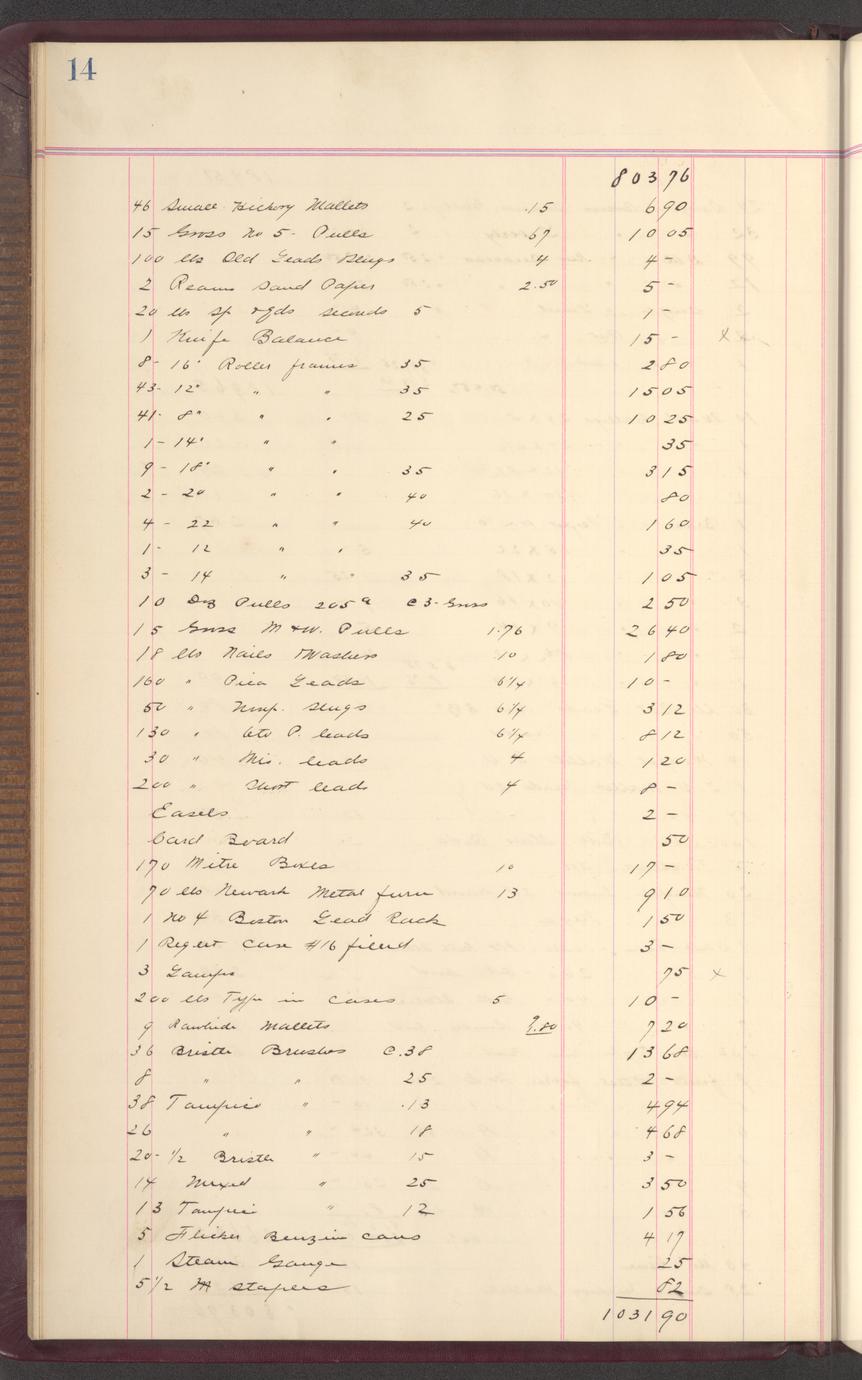 14
803 76
46 Small Hickory Mallets .15 6 90
15 Gross No 5- Pulls 67 10 05
100 lbs Old Leads Slugs 4 4 -
2 Reams Sand Paper 2.50 5 -
20 lbs Sp seconds 5 1 -
1 Knife Balance 15 - x
8 - 16" Roller frames 35 2 80
43 - 12" " " 35 15 05
41 - 8" " " 25 10 25
1 - 14" " " 35
9 - 18" " " 35 3 15
2 - 20 " " 40 80
4 - 22 " " 40 1 60
1 - 12 " " 35
3 - 14 " " 35 1 05
10 Doz Pulls 205a C 3- Gross 2 50
15 Gross M & W. Pulls 1.76 26 40
18 lbs Nails & Washers 10 1 80
160 " Pica Leads 6 1/4 10 -
50 " Nonp. Slugs 6 1/4 3 12
130 " P. leads 6 1/4 8 12
30 " Mis. leads 4 1 20
200 " Short leads 4 8 -
Easels 2 -
Card Board 50
170 Mitre Boxes 10 17 -
70 lbs Newark Metal furn 13 9 10
1 No 4 Boston Lead Rack 1 50
1 Reglet Case #16 filled 3 -
3 Lamps 75 x
200 lbs Type in cases 5 10 -
9 Rawhide Mallets 9.80 7 20
36 Bristle Brushes C .38 13 68
8 " " 25 2 -
38 Tampico " .13 4 94
26 " " 18 4 68
20 - 1/2 Bristle " 15 3 -
14 Mixed " 25 3 50
13 Tampico " 12 1 56
5 Flicker Benzin cans 4 17
1 Steam Gauge 25
5 1/2 M staples 82
1031 90